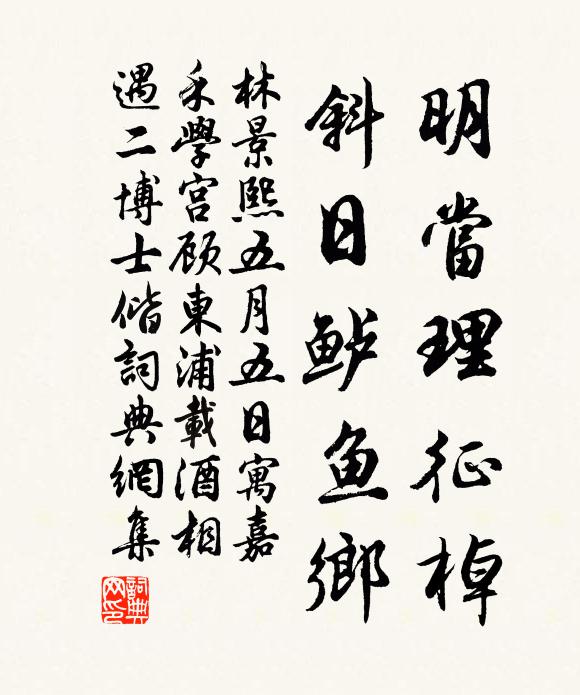 明當理征棹
斜日鲈鱼鄉
林景熙五月五日寓嘉
禾學宫顾東浦載酒相
遇二博士偕詞典網集
詞典网印